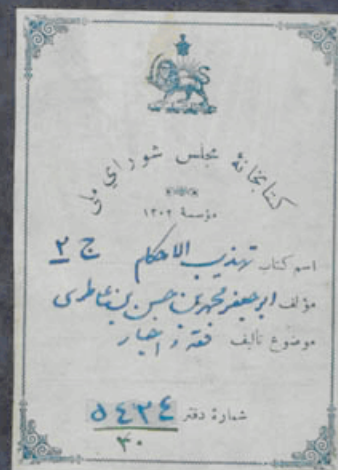 کتابخانهٔ مجلس شورای ملی
مؤسسهٔ ۱۳۰۲
اسم کتاب تهذیب الاحکام ج ۲
مؤلف ابوجعفر محمد بن حسن بن علی طوسی
موضوع تألیف فقه و اخبار
شمارهٔ دفتر ۵۴۳۴
۴۰